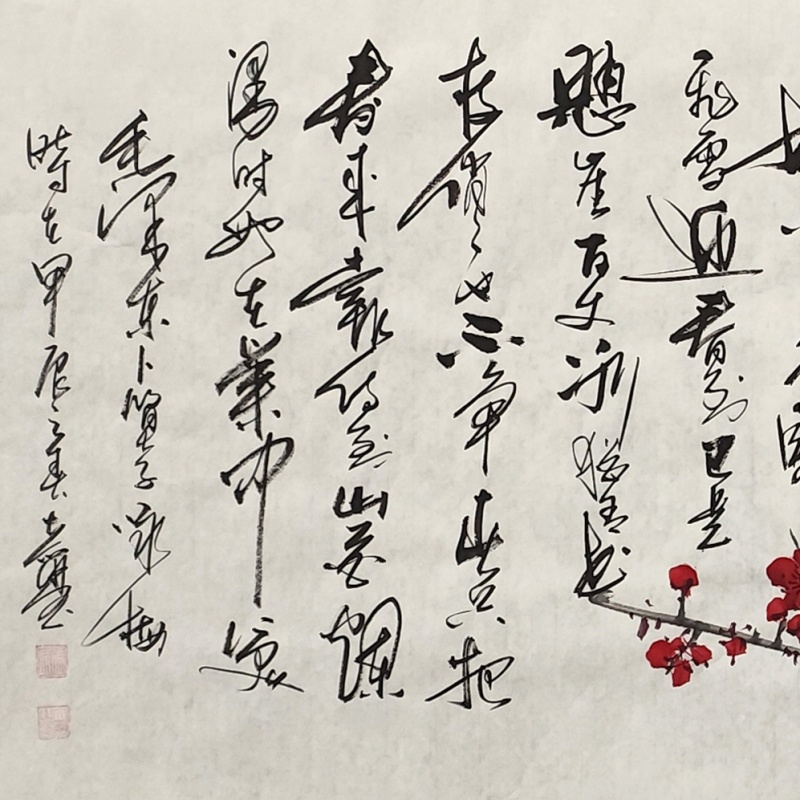 飛雪迎春到已是
懸崖百丈冰猶有花
枝俏々也不争春只把
春來報待到山花爛
漫時她在叢中笑
毛澤東卜算子咏梅
時在甲辰之春